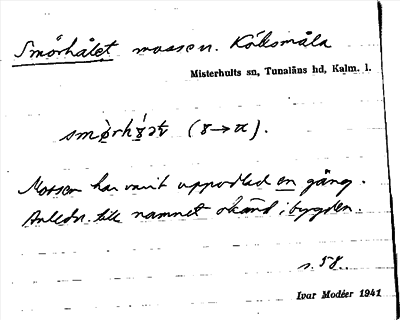 Smörhålet mossen. Köksmåla
Misterhults sn, Tunaläns hd, Kalm. l.
(ɤ→α).
Mossen har varit uppodlad en gång.
Anledn. till namnet okänd i bygden.
s. 58.
Ivar Modéer 1941